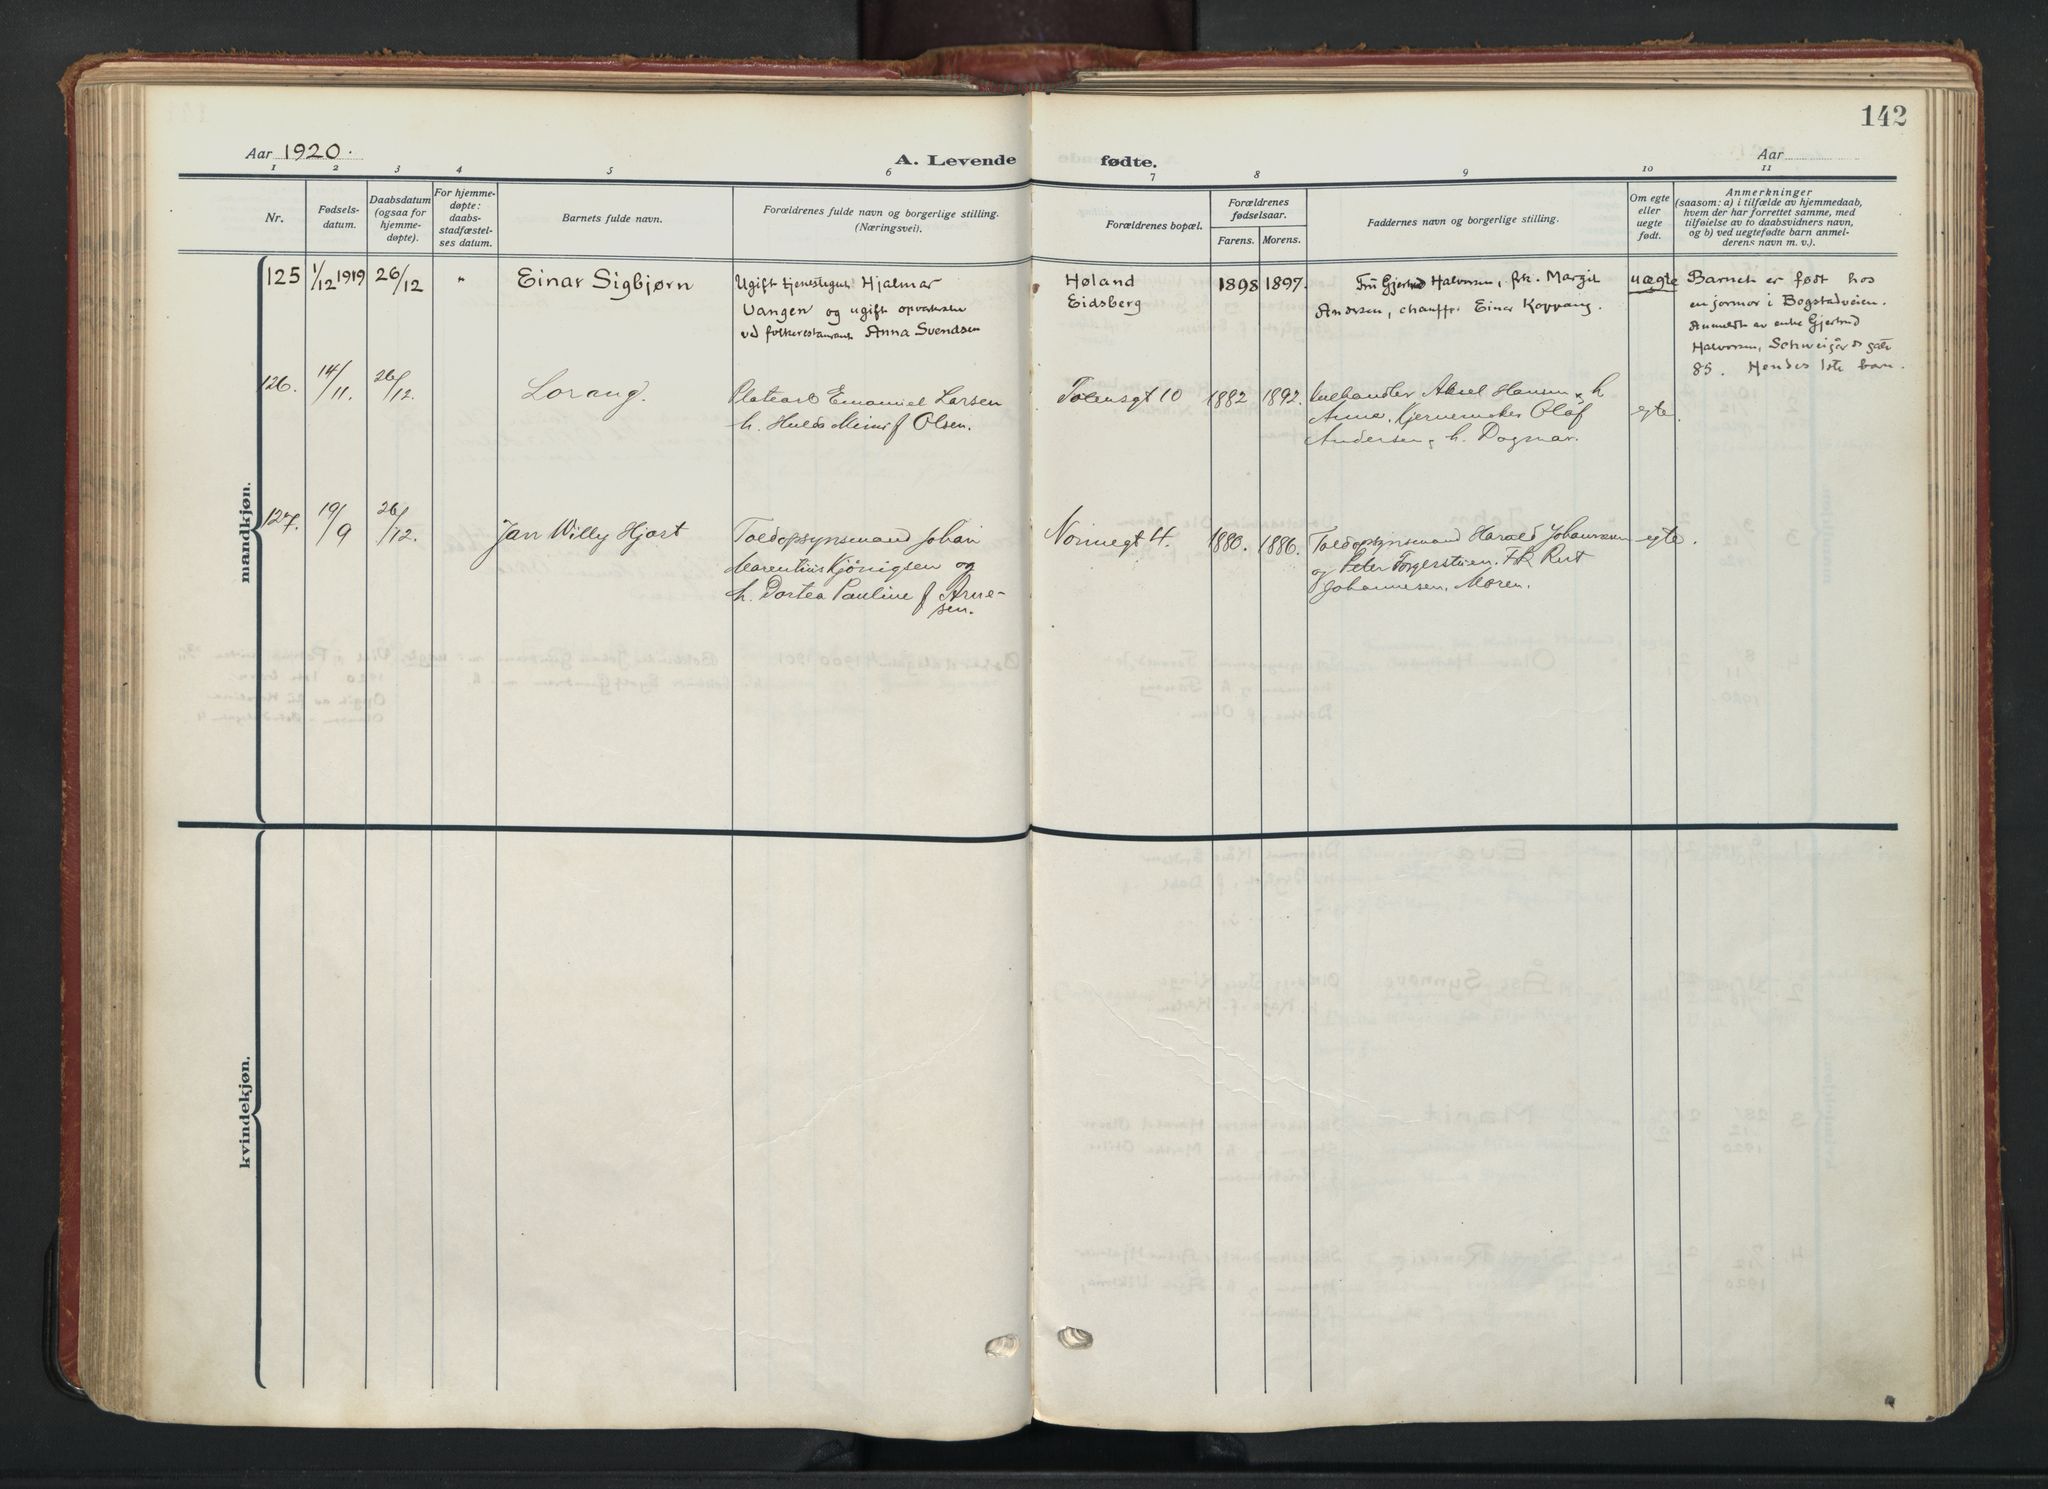 142
Aar 1920.
A. Levende fødte.
Aar
1 2 3 4 5 6 7 8 9 10 11
Nr.
Fødsels-
datum.
Daabsdatum
(ogsaa for
hjemme-
døpte).
For hjemme-
døpte:
daabs-
stadfæstel-
ses datum.
Barnets fulde navn.
Forældrenes fulde navn og borgerlige stilling.
(Næringsvei).
Forældrenes bopæl.
Forældrenes
fødselsaar.
Farens. Morens.
Faddernes navn og borgerlige stilling.
Om egte
eller
uegte
født.
Anmerkninger
(saasom: a) i tilfælde av hjemmedaab,
hvem der har forrettet samme, med
tilføielse av to daabsvidners navn,
og b) ved uegtefødte barn anmel-
derens navn m. v.).
mandkjøn.
125 1/12 1919 26/12 " Einar Sigbjørn
Ugift Hjalmar
Vangen og ugift
ved Anna Svendsen
Høland
Eidsberg
1898 1897.
Fru Gjertrud Halvorsen, frk. Margit
Andersen, chauffør Einar Koppang.
uægte
Barnet er født hos
en jormor i Bogstadveien.
Anmeldt av enke Gjertrud
Halvorsen, Schweigårds gate
85. Hendes 1ste barn.
126. 14/11. 26/12. Lorang.
Emanuel Larsen
h. Hulda f Olsen.
Toiensgt 10
1882 1892.
Aksel Hansen & h
Anna. Olaf
Andersen, h. Dagmar.
egte.
127. 19/9 26/12. Jan Willy Hjort
Toldopsynsmand Johan
Marentius Kjönigsen og
h. Dortea Pauline f Arne-
sen.
4.
1880. 1886.
Toldopsynsmand Harald Johannesen
og Peter Frk Rut
Johannesen, Moren.
egte.
kvindekjøn.